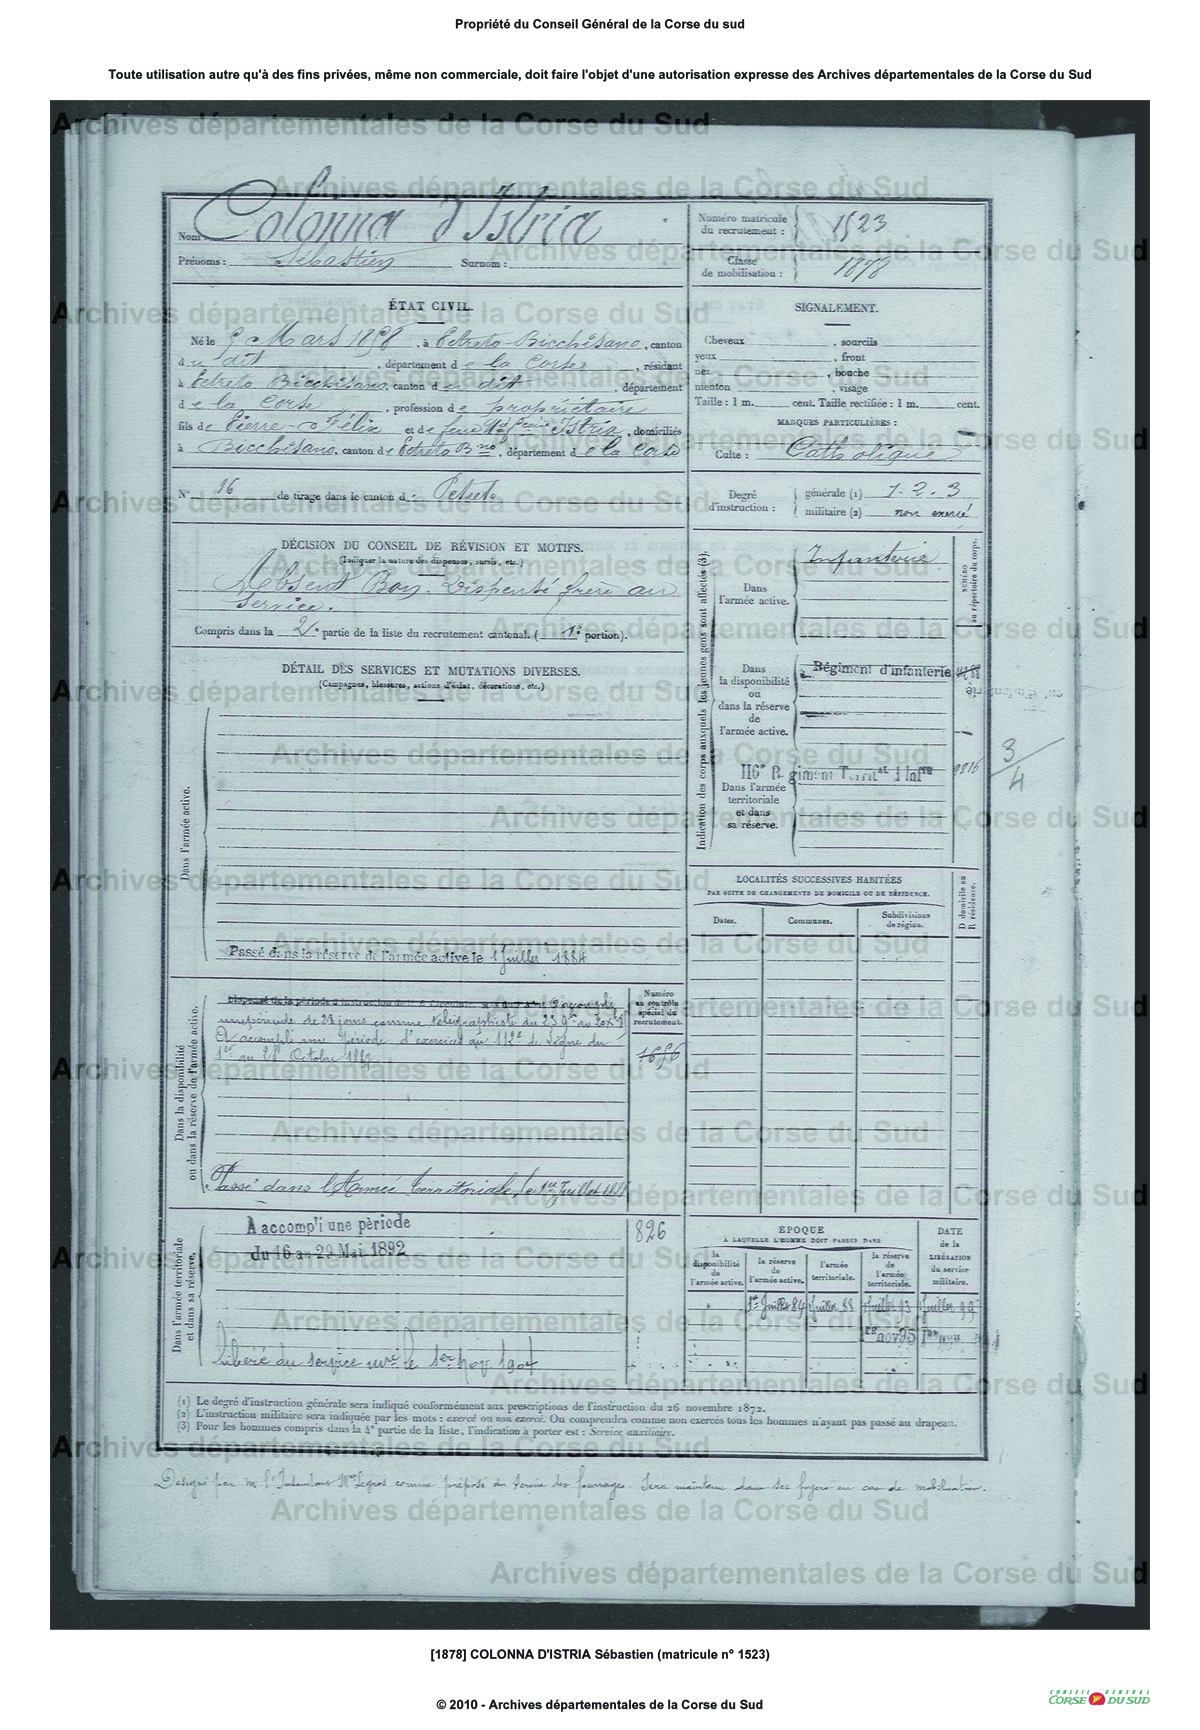 Propriété du Conseil Général de la Corse du sud
Toute utilisation autre qu'à des fins privées, même non commerciale, doit faire l'objet d'une autorisation expresse des Archives départementales de la Corse du Sud
Archives départementales de la Corse du Sud
Nom : Colonna d'Istria
Prénoms : Sébastien Surnom :
Numéro matricule
du recrutement : 1523
Classe
de mobilisation : 1878
ÉTAT CIVIL.
Né le 9 Mars 1858, à Petreto-Bicchisano, canton
du dit, département de la Corse, résidant
à Petreto Bicchisano, canton du dit, département
de la Corse, profession de propriétaire
fils de Pierre-Félix et de feue Istria, domiciliés
à Bicchisano, canton de Petreto Bno, département de la Corse
N° 16 de tirage dans le canton d : Petreto
SIGNALEMENT.
Cheveux , sourcils
yeux , front
nez , bouche
menton , visage
Taille : 1 m. cent. Taille rectifiée : 1 m. cent.
MARQUES PARTICULIÈRES :
Culte : Catholique
Degré
d'instruction :
générale (1) 1.2.3
militaire (2) non exercé
DÉCISION DU CONSEIL DE RÉVISION ET MOTIFS.
(Indiquer la nature des dispenses, sursis, etc.)
Absent Bon. Dispensé frère au
service.
Compris dans la 2e partie de la liste du recrutement cantonal. ( 1e portion).
DÉTAIL DES SERVICES ET MUTATIONS DIVERSES.
(Campagnes, blessures, actions d'éclat, décorations, etc.)
Dans l'armée active.
Passé dans la réserve de l'armée active le 1 Juillet 1884
Indication des corps auxquels les jeunes gens sont affectés (3).
NUMÉRO
au répertoire du corps.
Dans
l'armée active.
Infanterie
Dans
la disponibilité
ou
dans la réserve
de
l'armée active.
Régiment d'infanterie
116e Régiment Territal d'Infrie
Dans l'armée
territoriale
et dans
sa réserve.
3/4
LOCALITÉS SUCCESSIVES HABITÉES
PAR SUITE DE CHANGEMENTS DE DOMICILE OU DE RÉSIDENCE.
Dates.
Communes.
Subdivisions
de région.
D domicile ou
R résidence.
Dans la disponibilité
ou dans la réserve de l'armée active.
A accompli
une période de 28 jours comme télégraphiste du 23
A accompli une période d'exercices au 112e de ligne du
1er au 28 Octobre 1887
Passé dans l'Armée territoriale, le 1er Juillet
Numéro
au contrôle
spécial du
recrutement.
1656
Dans l'armée territoriale
et dans sa réserve.
A accompli une période
du 16 au 29 Mai 1892
826
libéré du service le 1er nov. 1904
ÉPOQUE
A LAQUELLE L'HOMME DOIT PASSER DANS
la
disponibilité
de
l'armée active.
la réserve
de
l'armée active.
l'armée
territoriale.
la réserve
de
l'armée
territoriale.
DATE
de la
LIBÉRATION
du service
militaire.
1er Juillet 84 Juillet 88 Juillet 93 Juillet 99
1er nov 95
(1) Le degré d'instruction générale sera indiqué conformément aux prescriptions de l'instruction du 26 novembre 1872.
(2) L'instruction militaire sera indiquée par les mots : exercé ou non exercé. On comprendra comme non exercés tous les hommes n'ayant pas passé au drapeau.
(3) Pour les hommes compris dans la 4e partie de la liste, l'indication à porter est : Service auxiliaire.
Désigné par Mr l'Intendant comme préposé du service des fourrages. Sera maintenu dans ses foyers en cas de mobilisation.
[1878] COLONNA D'ISTRIA Sébastien (matricule n° 1523)
© 2010 - Archives départementales de la Corse du Sud
CONSEIL GÉNÉRAL
CORSE DU SUD